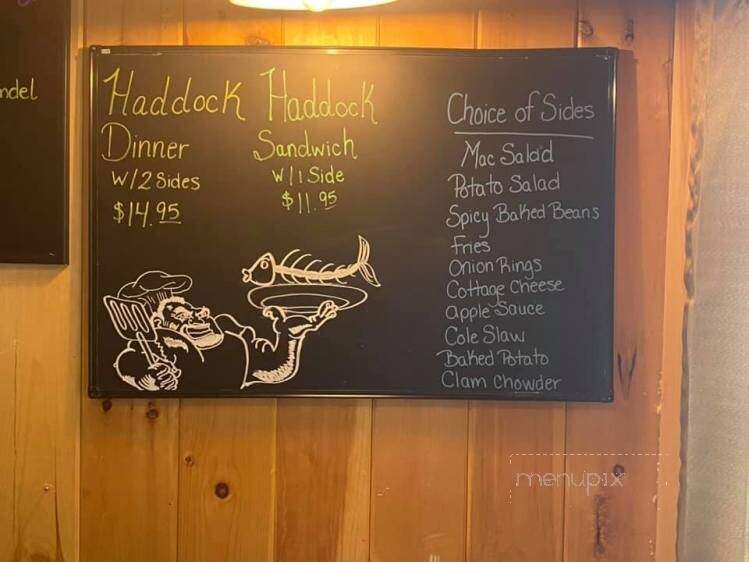 ndel
Haddock
Dinner
W/2 Sides
$14.95
Haddock
Sandwich
W/1 Side
$11.95
Choice of Sides
Mac Salad
Potato Salad
Spicy Baked Beans
Fries
Onion Rings
Cottage Cheese
Apple Sauce
Cole Slaw
Baked Potato
Clam Chowder
menupix